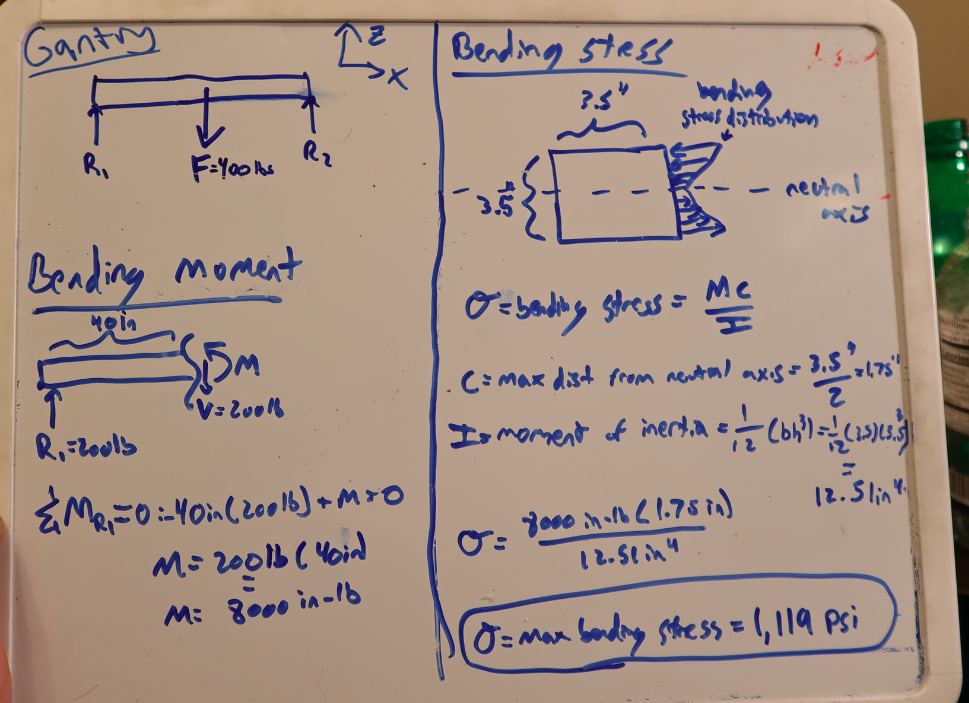 Gantry
Z
X
R₁
F=400lbs
R₂
Bending moment
40in
M
V=200lb
R₁=200lb
ΣM_R₁=0:-40in(200lb)+M=0
M=200lb(40in)
=
M= 8000 in-lb
Bending stress
3.5"
bending
stress distribution
3.5"
neutral
axis
σ=bending stress= Mc/I
C=max dist from neutral axis=3.5"/2=1.75"
I=moment of inertia=1/12(bh³)=1/12(3.5)(3.5³)
=
12.51in⁴
σ= 8000 in-lb(1.75in)/12.51in⁴
σ=max bending stress=1,119 psi